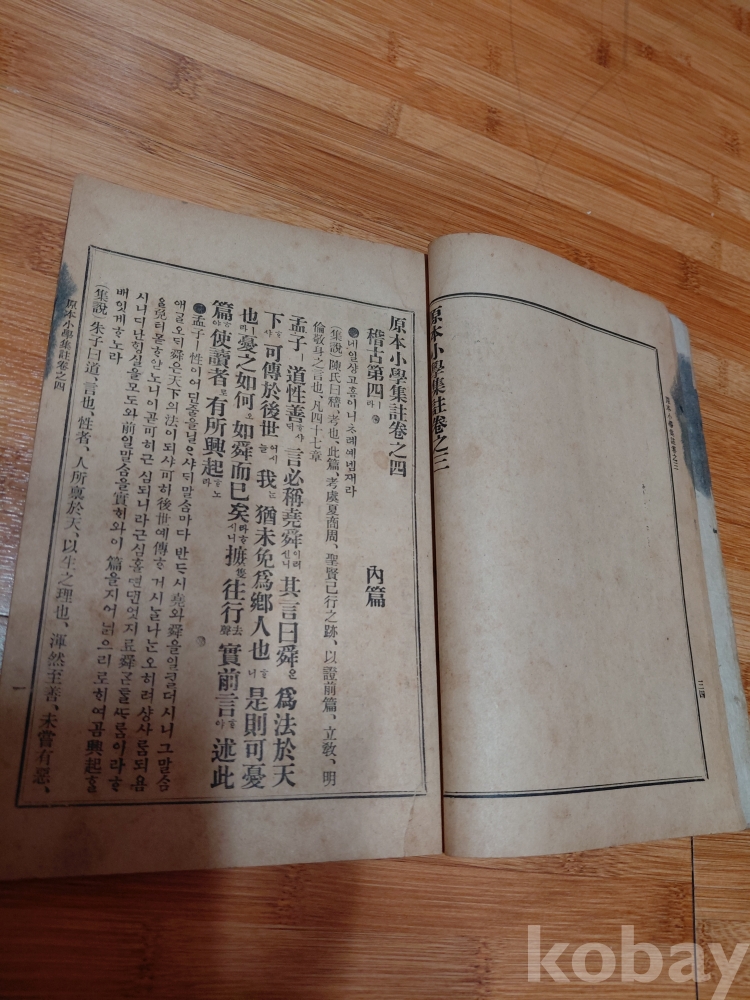 原本小學集註卷之三
原本小學集註卷之三
三四
原本小學集註卷之四
內篇
稽古第四ㅣ라
네일샹고홈이니ᄎ례예넷재라
(集說) 陳氏曰稽、考也、此篇、考虞夏商周、聖賢已行之跡、以證前篇、立敎、明
倫敬身之言也、凡四十七章
孟子ㅣ道性善ᄒᆞ샤ᄃᆡ言必稱堯舜이러시니其言曰舜은爲法於天
下ᄒᆞ샤可傳於後世어시ᄂᆞᆯ我ᄂᆞᆫ猶未免爲鄕人也ᄒᆞ니是則可憂
也ㅣ라憂之如何오如舜而已矣라ᄒᆞ시니摭隻往行去聲ᄒᆞ며實前言ᄒᆞ야述此
篇ᄒᆞ야使讀者로有所興起ᄒᆞ노라
孟子ㅣ性이어딘줄을닐ᄋᆞ샤ᄃᆡ말ᄉᆞᆷ마다반ᄃᆞ시堯와舜을일ᄏᆞᆮ더시니그말ᄉᆞᆷ
애ᄀᆞᆯ오ᄃᆡ舜은天下의法이되샤可히後世예傳ᄒᆞ거시ᄂᆞᆯ나ᄂᆞᆫ오히려샹사ᄅᆞᆷ되욤
을免티몯ᄒᆞ얀노니이곧可히근심되니라근심홀딘댄엇지료舜ᄀᆞᆮᄐᆞᆯᄯᆞᄅᆞᆷ이라ᄒᆞ
시니디난ᄒᆡᆼ실을모도와前일말ᄉᆞᆷ을實ᄒᆡ와이篇을지어닑으리로ᄒᆡ여곰興起ᄒᆞᆯ
배잇게ᄒᆞ노라
(集說) 朱子曰道、言也、性者、人所禀於天、以生之理也、渾然至善、未嘗有惡、
原本小學集註卷之四
一
kobay